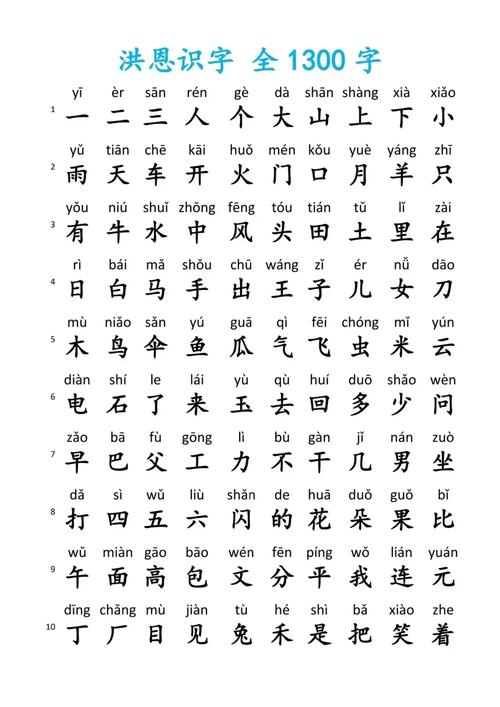 洪恩识字 全1300字
yī èr sān rén gè dà shān shàng xià xiǎo
1 一 二 三 人 个 大 山 上 下 小
yǔ tiān chē kāi huǒ mén kǒu yuè yáng zhī
2 雨 天 车 开 火 门 口 月 羊 只
yǒu niú shuǐ zhōng fēng tóu tián tǔ lǐ zài
3 有 牛 水 中 风 头 田 土 里 在
rì bái mǎ shǒu chū wáng zǐ ér nǚ dāo
4 日 白 马 手 出 王 子 儿 女 刀
mù niǎo sǎn yú guā qì fēi chóng mǐ yún
5 木 鸟 伞 鱼 瓜 气 飞 虫 米 云
diàn shí le lái yù qù huí duō shǎo wèn
6 电 石 了 来 玉 去 回 多 少 问
zǎo bā fù gōng lì bù gàn jǐ nán zuò
7 早 巴 父 工 力 不 干 几 男 坐
dǎ sì wǔ liù shǎn de huā duǒ guǒ bǐ
8 打 四 五 六 闪 的 花 朵 果 比
wǔ miàn gāo bāo wén fēn píng wǒ lián yuán
9 午 面 高 包 文 分 平 我 连 元
dīng chǎng mù jiàn tù hé shì bǎ xiào zhe
10 丁 厂 目 见 兔 禾 是 把 笑 着